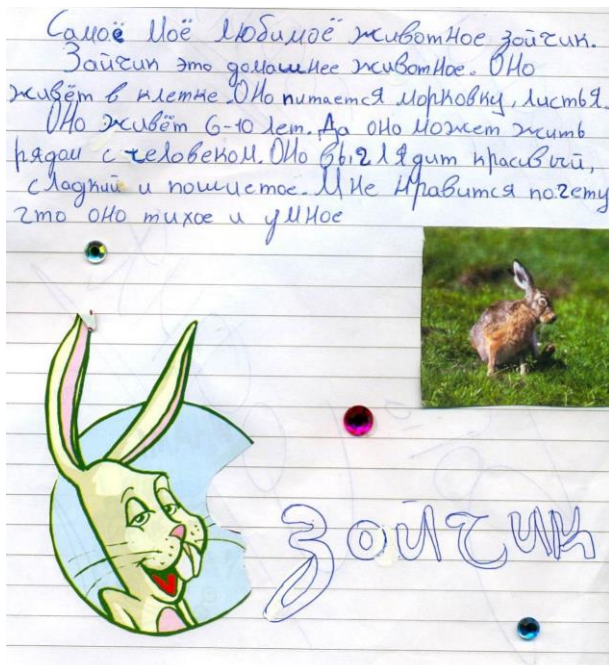 Самоё Моё Любимоё животное зойчик.
Зойчик это домашнее животное. Оно
живёт в клетке. Оно питается морковку, листья.
Оно живёт 6-10 лет. Да оно может жить
рядом с человеком. Оно выглядит красивый,
сладкий и пошистое. Мне нравится почему
что оно тихое и умное
зойчик